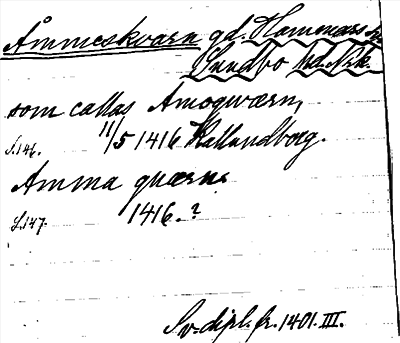 Åmmeskvarn gd. Hammars sn
Sundbo hd. Nrk.
som callas Amogwærn,
S.146. 11/5 1416 Kallundborg.
Amma quærn.
S.147. 1416.?
Sv. dipl. fr. 1401. III.